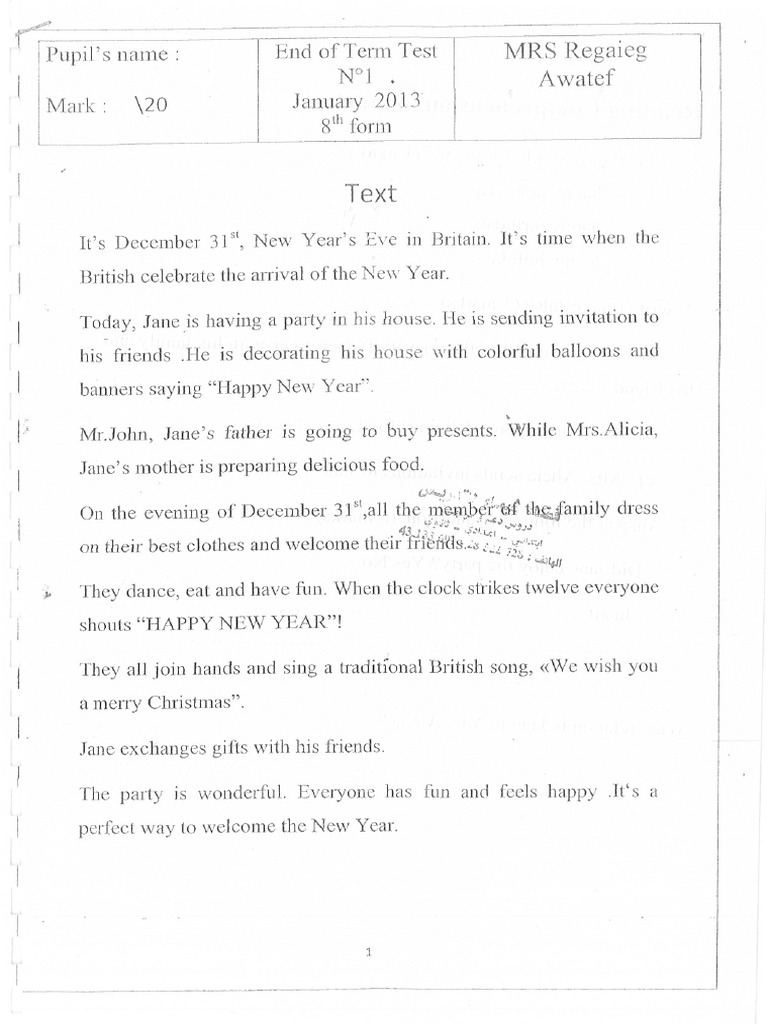 Pupil's name :
Mark : \20
End of Term Test
N°1 .
January 2013
8th form
MRS Regaieg
Awatef
Text
It's December 31st, New Year's Eve in Britain. It's time when the
British celebrate the arrival of the New Year.
Today, Jane is having a party in his house. He is sending invitation to
his friends .He is decorating his house with colorful balloons and
banners saying "Happy New Year".
Mr.John, Jane's father is going to buy presents. While Mrs.Alicia,
Jane's mother is preparing delicious food.
On the evening of December 31st,all the member of the family dress
on their best clothes and welcome their friends.
They dance, eat and have fun. When the clock strikes twelve everyone
shouts "HAPPY NEW YEAR"!
They all join hands and sing a traditional British song, «We wish you
a merry Christmas".
Jane exchanges gifts with his friends.
The party is wonderful. Everyone has fun and feels happy .It's a
perfect way to welcome the New Year.
1